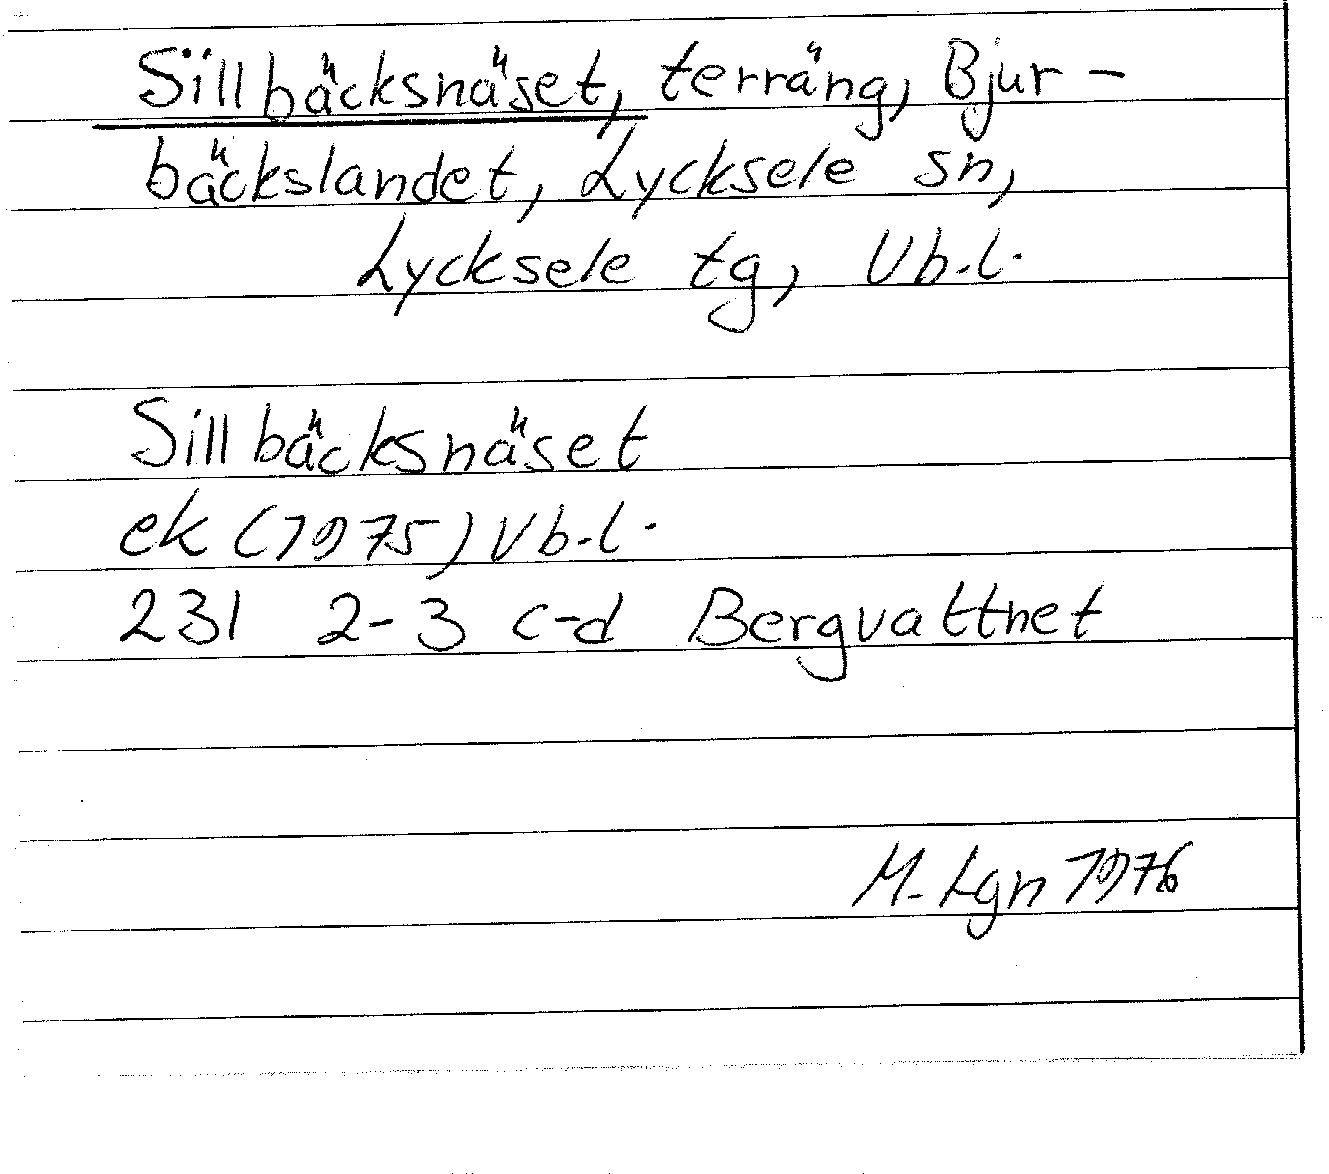 Sillbäcksnäset, terräng, Bjur-
bäckslandet, Lycksele sn,
Lycksele tg, Vb.l.
Sillbäcksnäset
ek (1975) Vb.l.
231 2-3 c-d Bergvattnet
M. Lgn 1976